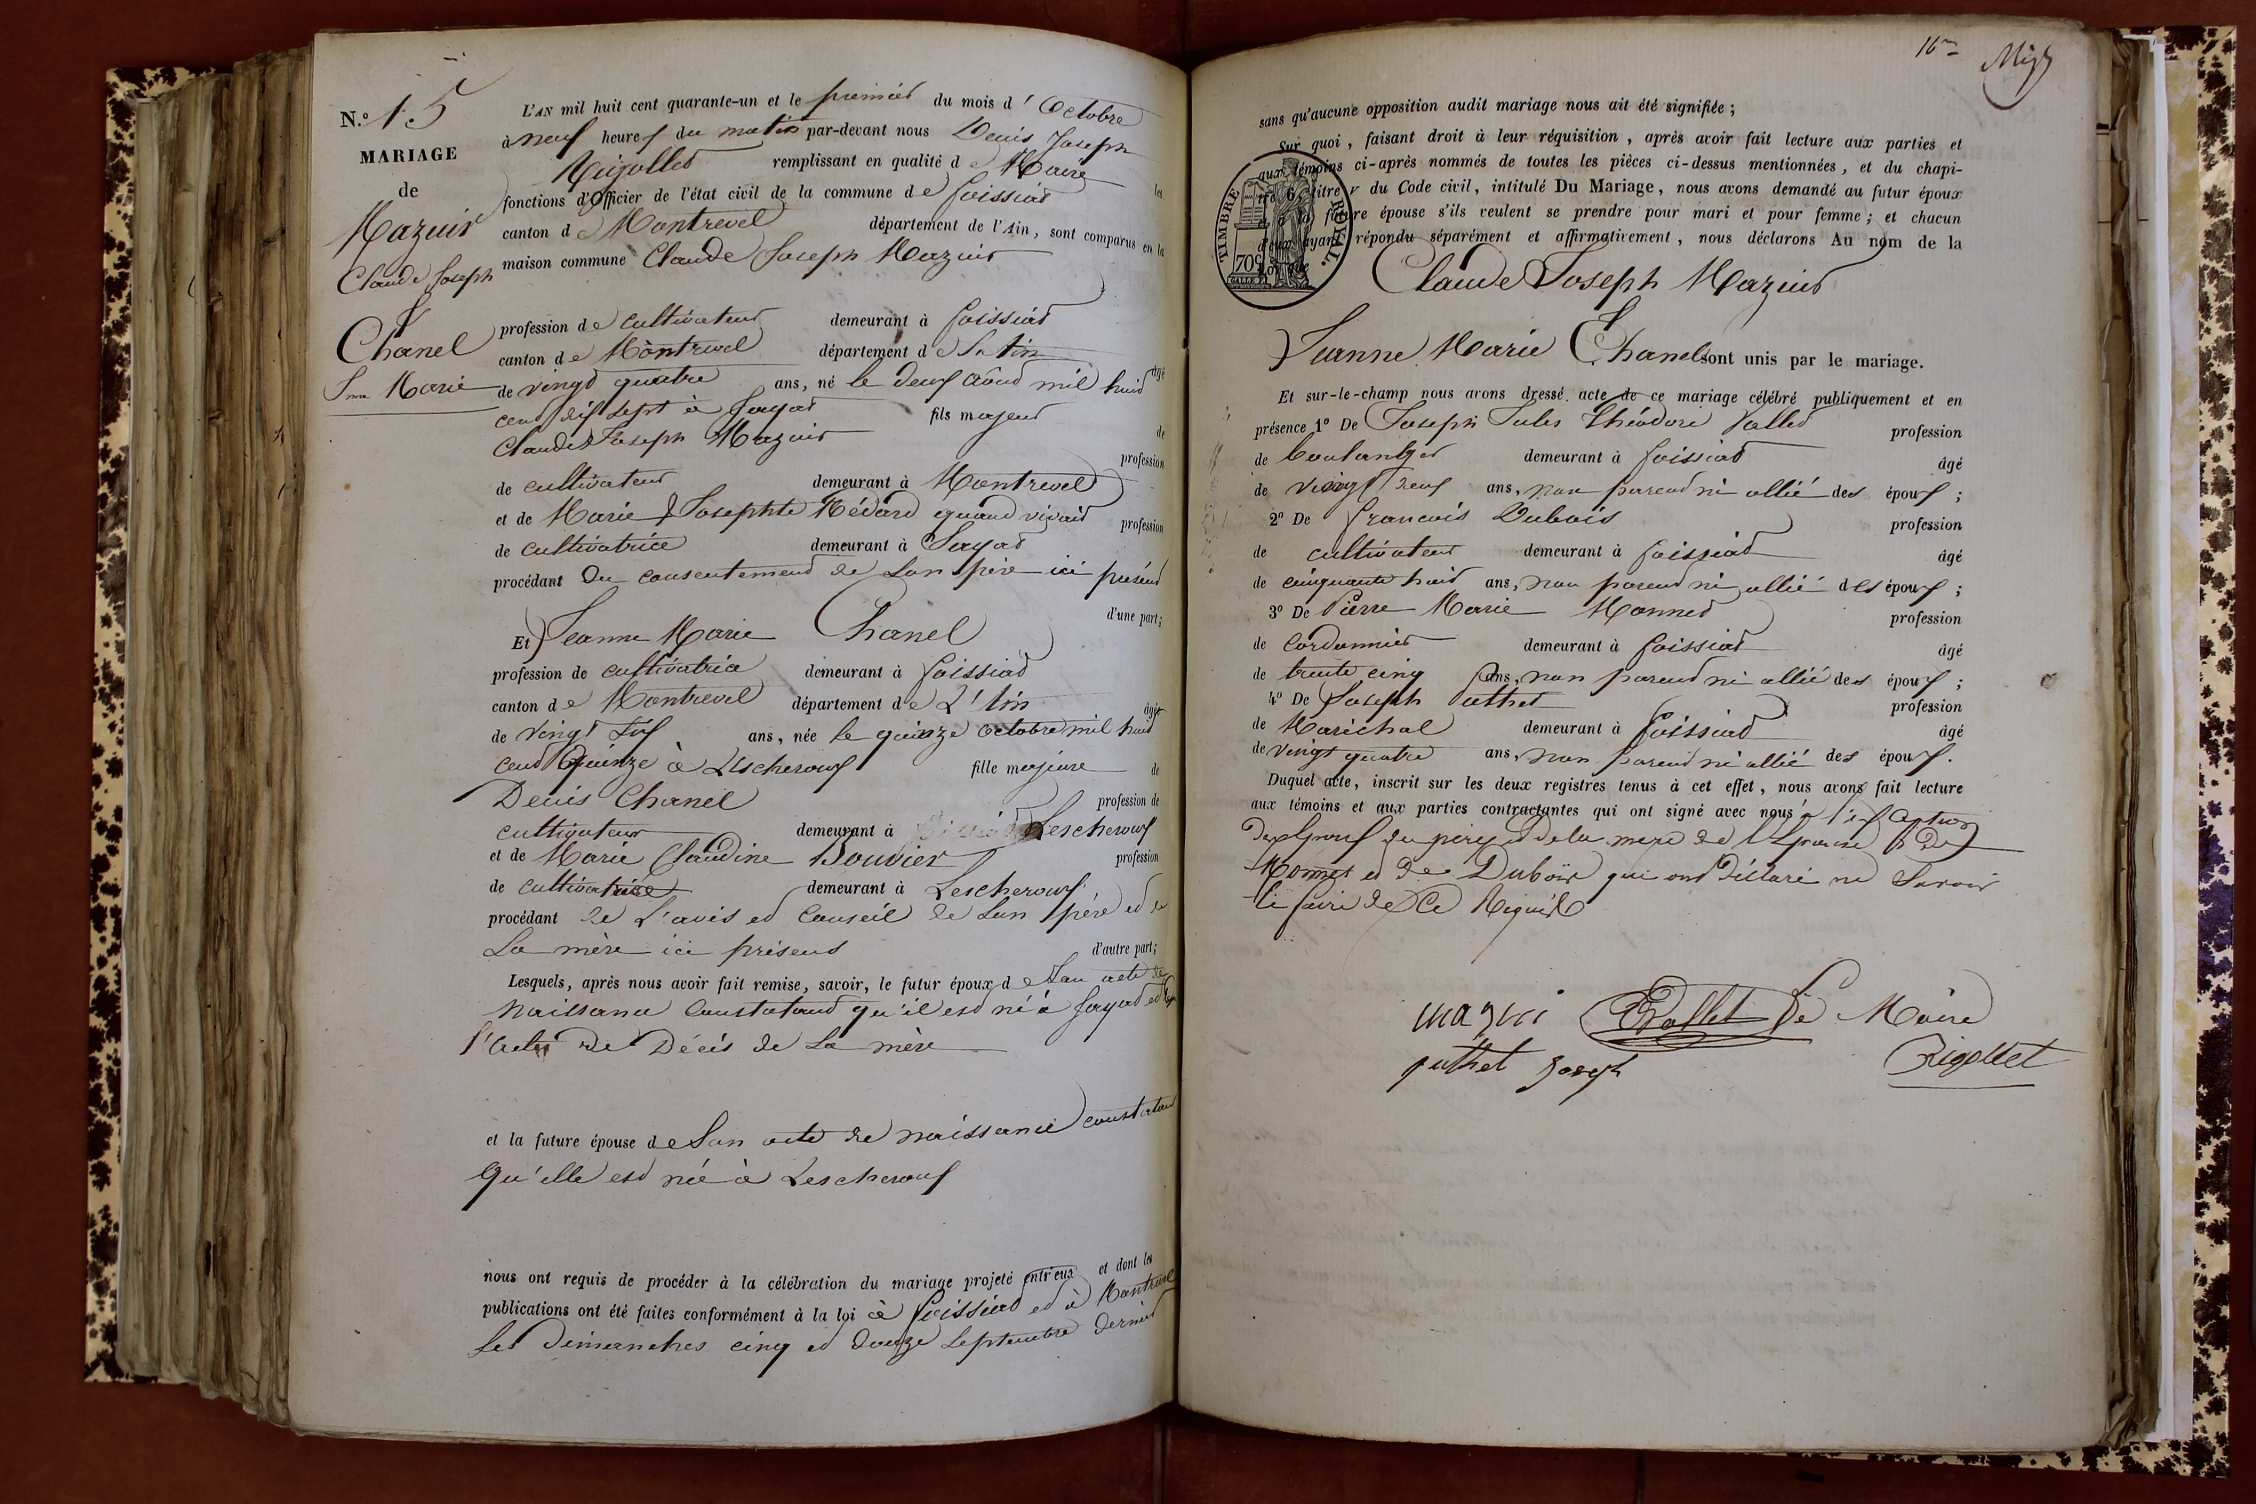 N.º 15
MARIAGE
de
Mazuir
Claude Joseph
&
Chanel
Jne Marie
L'AN mil huit cent quarante-un et le premier du mois d'Octobre
à neuf heures du matin par-devant nous Denis Joseph
Rigollet remplissant en qualité de Maire les
fonctions d'Officier de l'état civil de la commune de Foissiat
canton de Montrevel département de l'Ain, sont comparus en la
maison commune Claude Joseph Mazuir
profession de cultivateur demeurant à Foissiat
canton de Montrevel département de L'Ain âgé
de vingt quatre ans, né le deux Août mil huit
cent dix sept à Jayat fils majeur de
Claude Joseph Mazuir profession
de cultivateur demeurant à Montrevel
et de Marie Josephte Médard quand vivait profession
de cultivatrice demeurant à Jayat
procédant du consentement de son père ici présent
d'une part;
Et Jeanne Marie Chanel
profession de cultivatrice demeurant à Foissiat
canton de Montrevel département de L'Ain âgée
de vingt six ans, née le quinze octobre mil huit
cent Quinze à Lescheroux fille majeure de
Denis Chanel profession de
cultivateur demeurant à Lescheroux
et de Marie Claudine Bouvier profession
de cultivatrice demeurant à Lescheroux
procédant de L'avis et Conseil de son père et de
sa mère ici présens d'autre part;
Lesquels, après nous avoir fait remise, savoir, le futur époux de son acte de
naissance constatant qu'il est né à Jayat et de
l'acte de Décès de sa mère
et la future épouse de son acte de naissance constatant
qu'elle est née à Lescheroux
nous ont requis de procéder à la célébration du mariage projeté entr'eux et dont les
publications ont été faites conformément à la loi à Foissiat et à Montrevel
les Dimanches cinq et douze septembre dernier
16me
sans qu'aucune opposition audit mariage nous ait été signifiée;
Sur quoi, faisant droit à leur réquisition, après avoir fait lecture aux parties et
aux témoins ci-après nommés de toutes les pièces ci-dessus mentionnées, et du chapi-
tre 6, titre V du Code civil, intitulé Du Mariage, nous avons demandé au futur époux
et à la future épouse s'ils veulent se prendre pour mari et pour femme; et chacun
d'eux ayant répondu séparément et affirmativement, nous déclarons Au nom de la
Loi que
TIMBRE ROYAL.
70c
Claude Joseph Mazuir
Jeanne Marie Chanel sont unis par le mariage.
Et sur-le-champ nous avons dressé acte de ce mariage célébré publiquement et en
présence 1º De Joseph Jules Théodore Vallet profession
de boulanger demeurant à Foissiat âgé
de vingt neuf ans, non parent ni allié des époux;
2º De François Dubois profession
de cultivateur demeurant à Foissiat âgé
de cinquante huit ans, non parent ni allié des époux;
3º De Pierre Marie Monnet profession
de Cordonnier demeurant à Foissiat âgé
de trente cinq ans, non parent ni allié des époux;
4º De Joseph Puthet profession
de Maréchal demeurant à Foissiat âgé
de vingt quatre ans, non parent ni allié des époux.
Duquel acte, inscrit sur les deux registres tenus à cet effet, nous avons fait lecture
aux témoins et aux parties contractantes qui ont signé avec nous à l'exception
des Epoux du père et de la mère de l'Epouse de
Monnet et de Dubois qui ont déclaré ne savoir
le faire de ce Requis
mazuir Vallet Le Maire
puthet Joseph Rigollet